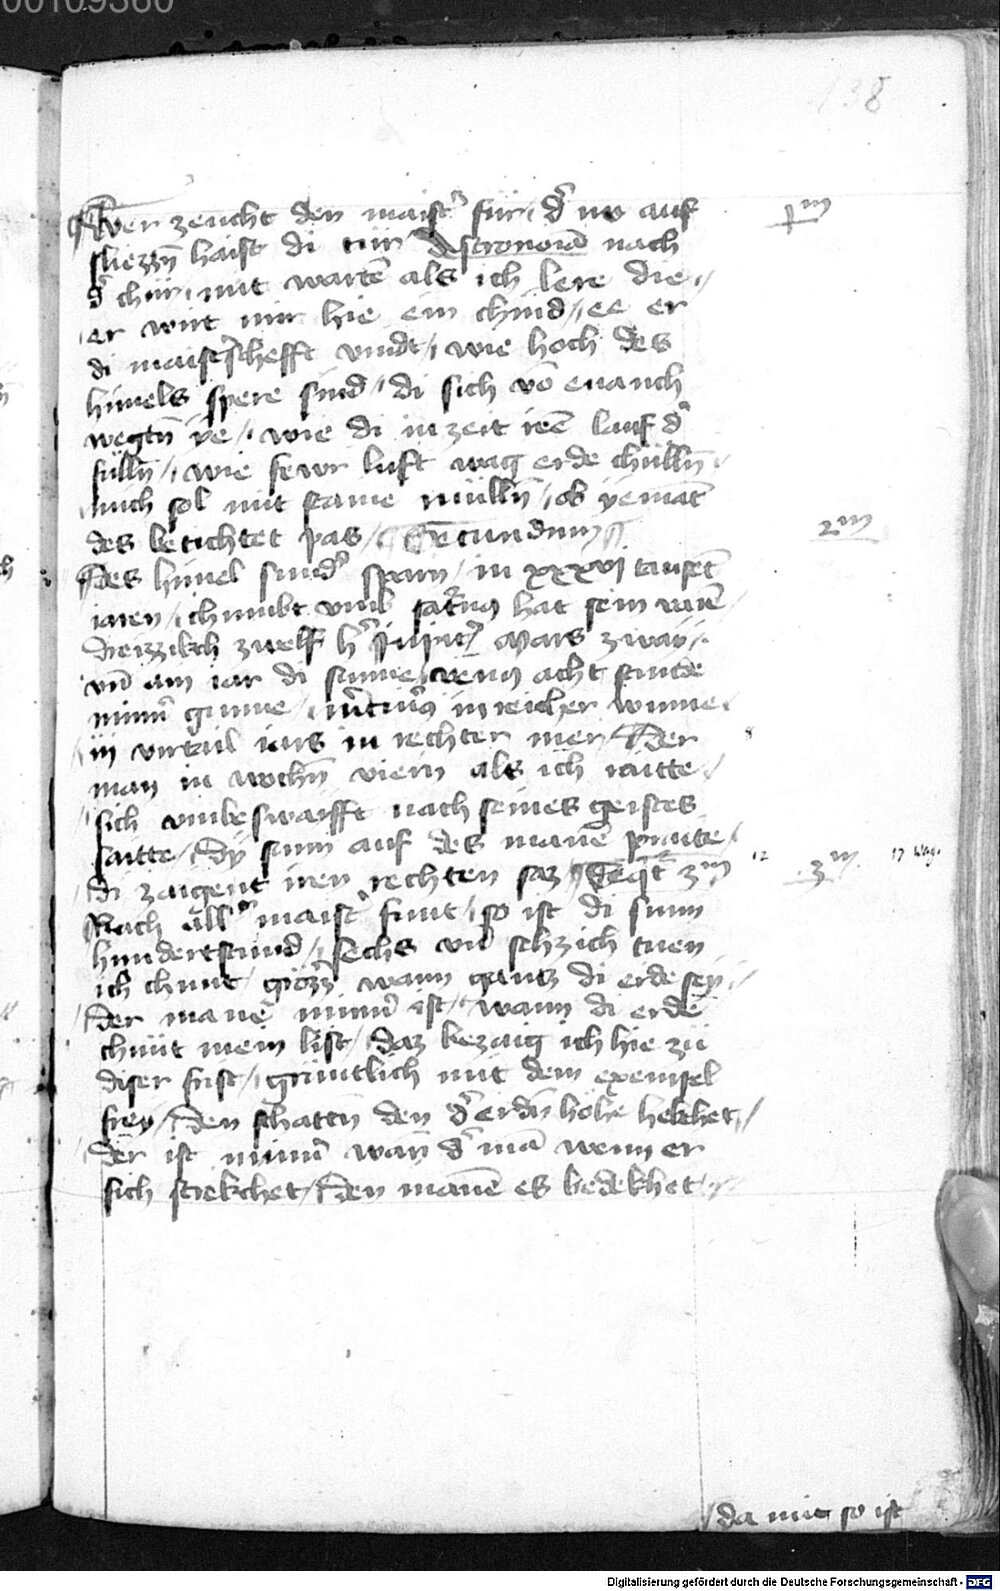 00109360
138
Wer zeucht den maistʼ für / dʼ nu auf
1m
sliezzn̄ haist di tür Astronomiā nach
dʼ chür / mit wartē als ich lere die /
er wirt mir hie ein chind / ee er
di maistʼschefft vindt / wie hoch des
himels spere sind / di sich vō enanch
wegtn̄ ye / wie di in zeit irē lauf dʼ
fülln̄ / wie fewr luft wag erde chülln̄
mich sol mit stame müllñ / ob yemāt
des betichtet pas / Secundum
2m
Des himel sind spām / in xxxvj tausēt
iaren / chumbt vmb satʼnus hat sein
dreizzikch zwelf hʼ Jupitʼ Mars zway /
vn̄ am iar di sunne venus acht stunde
minnʼ gunne / mʼcuriʼ in reicher wunne
iij virtail iars in rechter mer / Der
8
man in wochn̄ viern als ich raitte /
sich vmbeswaifft nach seines geistes
saitte / Dy sunn auf des manē praite /
di zaigent iren rechten saz Seqt̄ 3m
12
3m
17 Wag.
Nach allʼ maistʼ sunt / so ist di sunn
hundertstund / sechs vn̄ sechzich tuen
ich chunt / grözzʼ wann gantz di erde sey /
Der manē minnʼ ist / wann di erde
chunt mein list / daz bezaig ich hie zü
diser frist / grüntlich mit dem exempel
frey / Den schattn̄ den dʼ erdn̄ höhe hekchet /
Der ist minnʼ wan̄ dʼ mā wenn er
sich strekchet / Den manē es bedekhet
da mit so ist
Digitalisierung gefördert durch die Deutsche Forschungsgemeinschaft - DFG